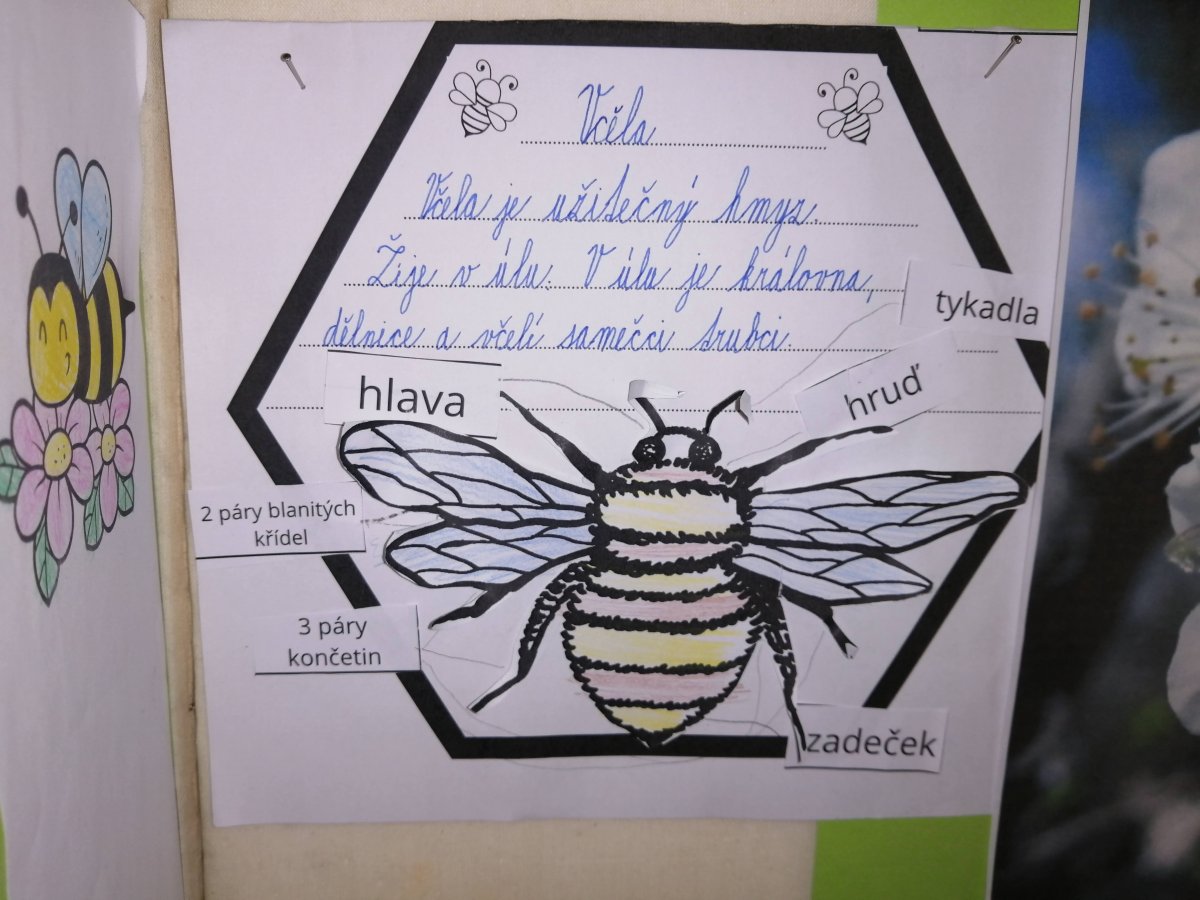 Včela
Včela je užitečný hmyz.
Žije v úlu. V úlu je královna,
dělnice a včelí samečci trubci.
tykadla
hruď
hlava
2 páry blanitých
křídel
3 páry
končetin
zadeček